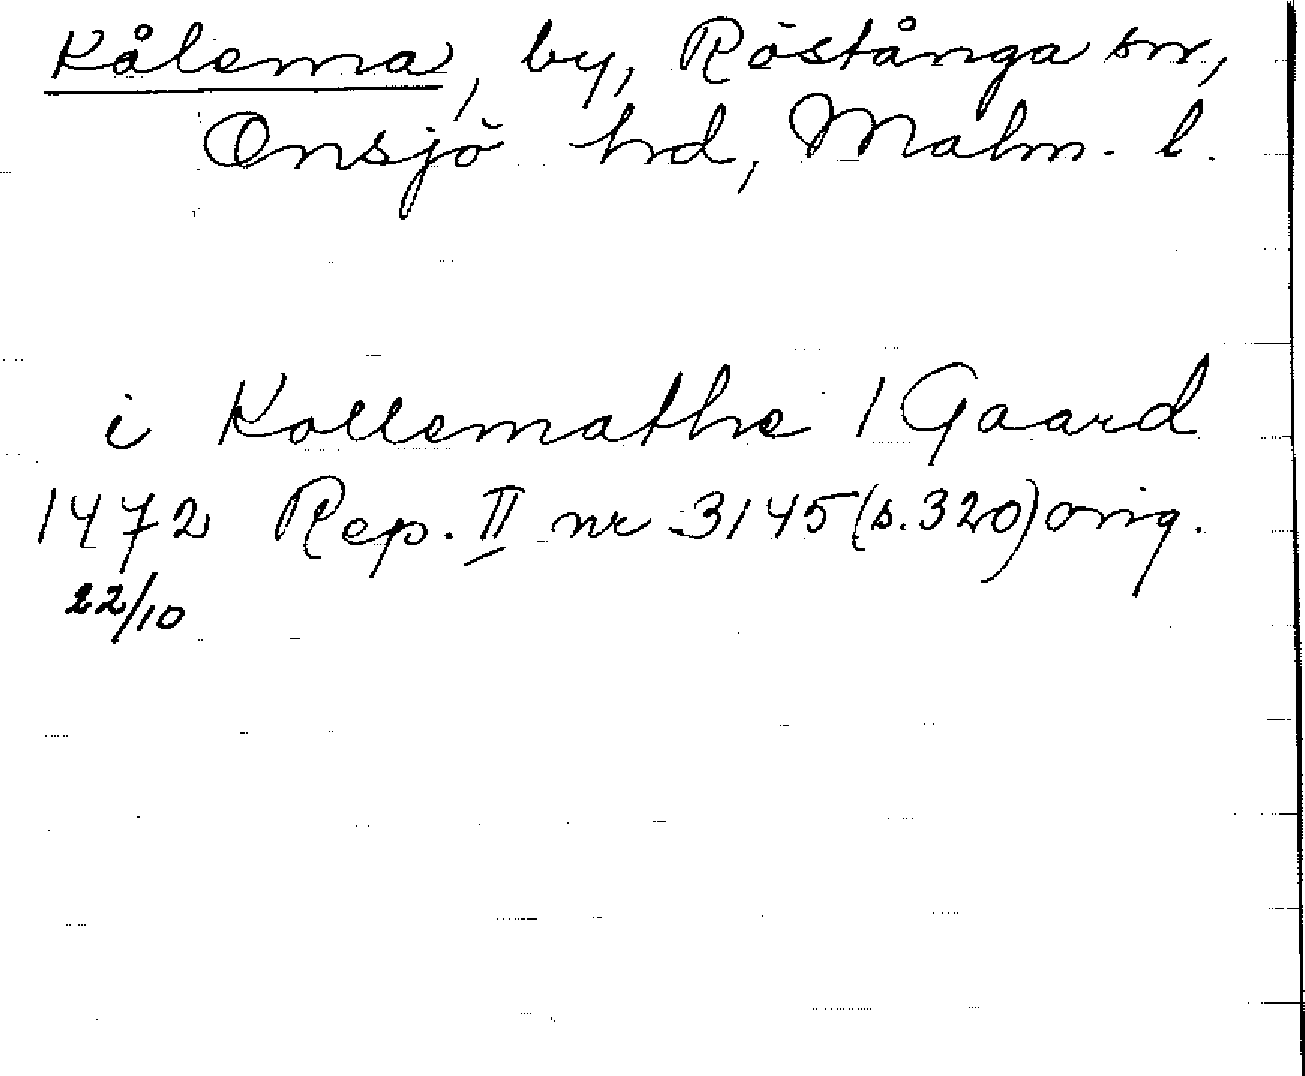 Kålema, by, Röstånga sn,
Onsjö hd, Malm. l.
i Kollemathe 1 Gaard
1472 Rep. II nr 3145 (s. 320) orig.
22/10